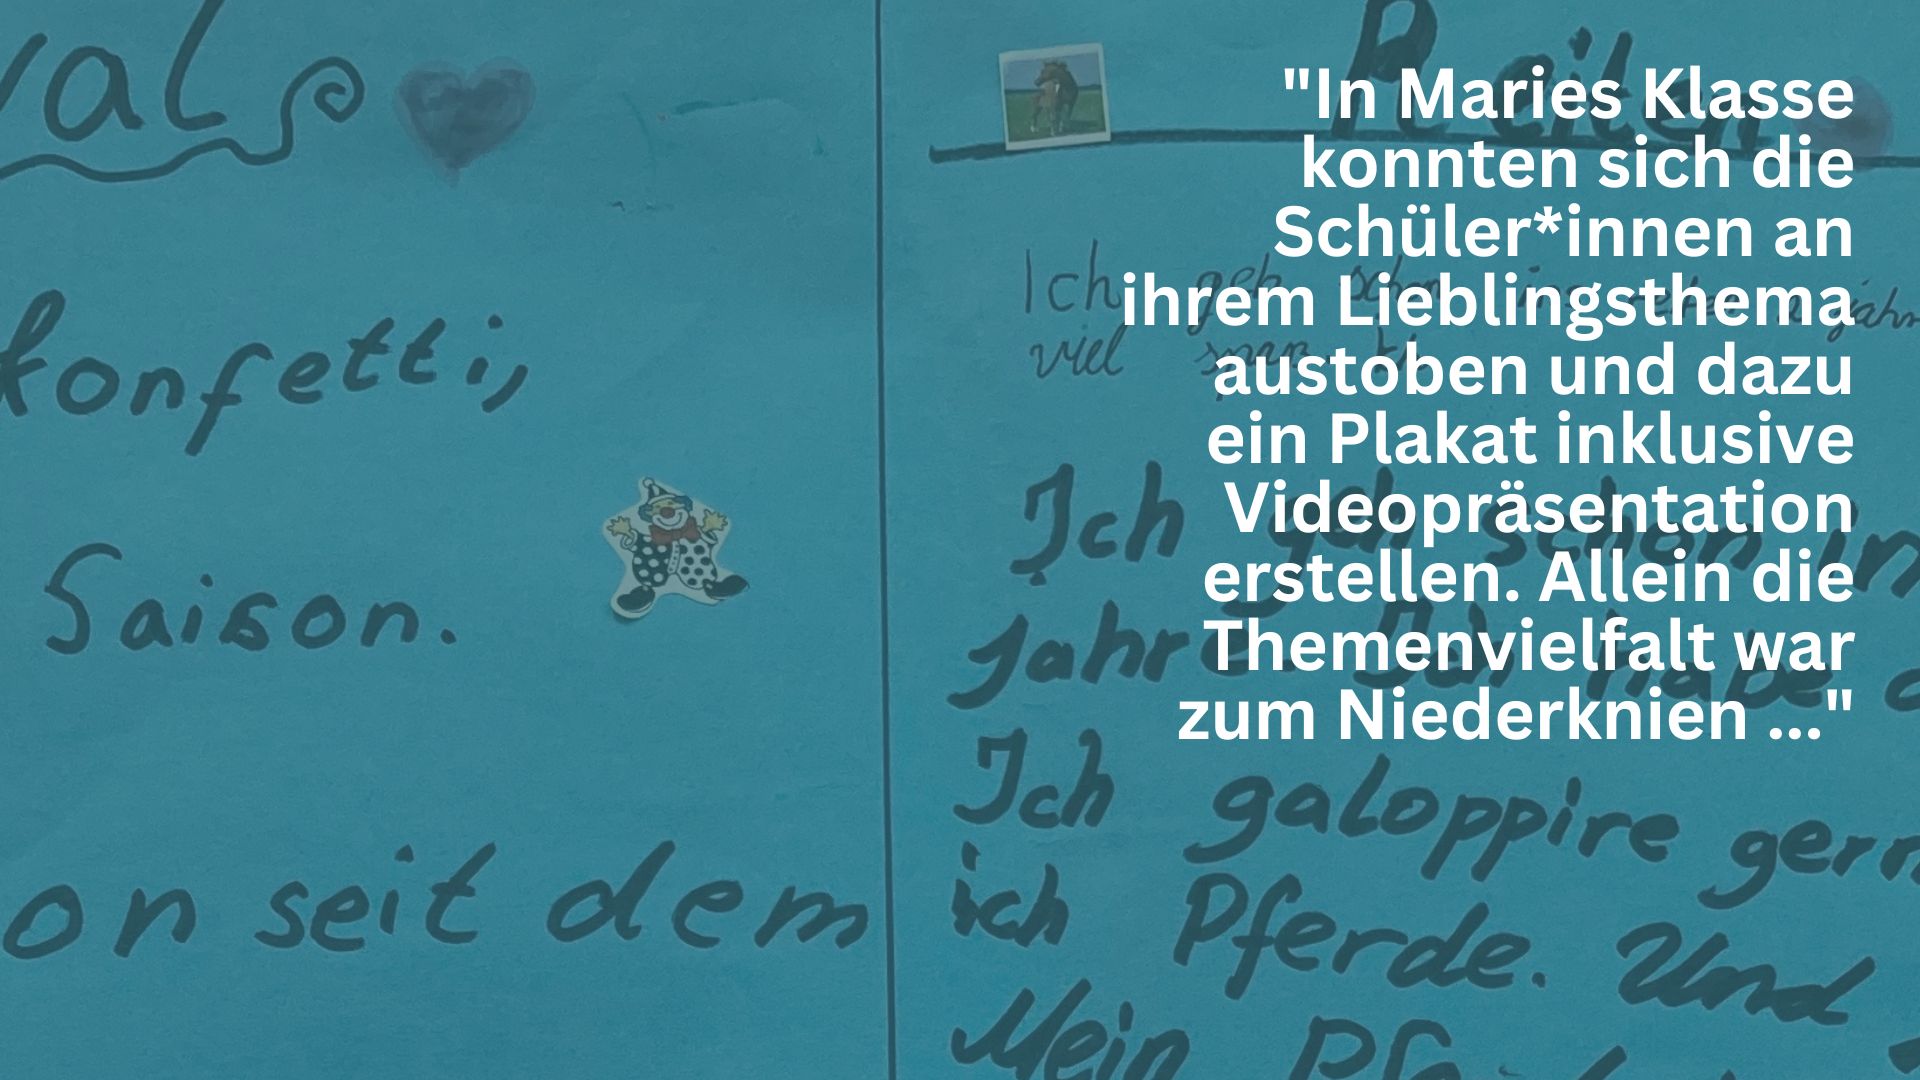 val
konfetti,
Saison.
on seit dem
Reiten
"In Maries Klasse
konnten sich die
Schüler*innen an
ihrem Lieblingsthema
austoben und dazu
ein Plakat inklusive
Videopräsentation
erstellen. Allein die
Themenvielfalt war
zum Niederknien ..."
Ich geh schon
viel
Ich geh schon
Jahre habe
Ich galoppire gern
ich Pferde. Und
Mein